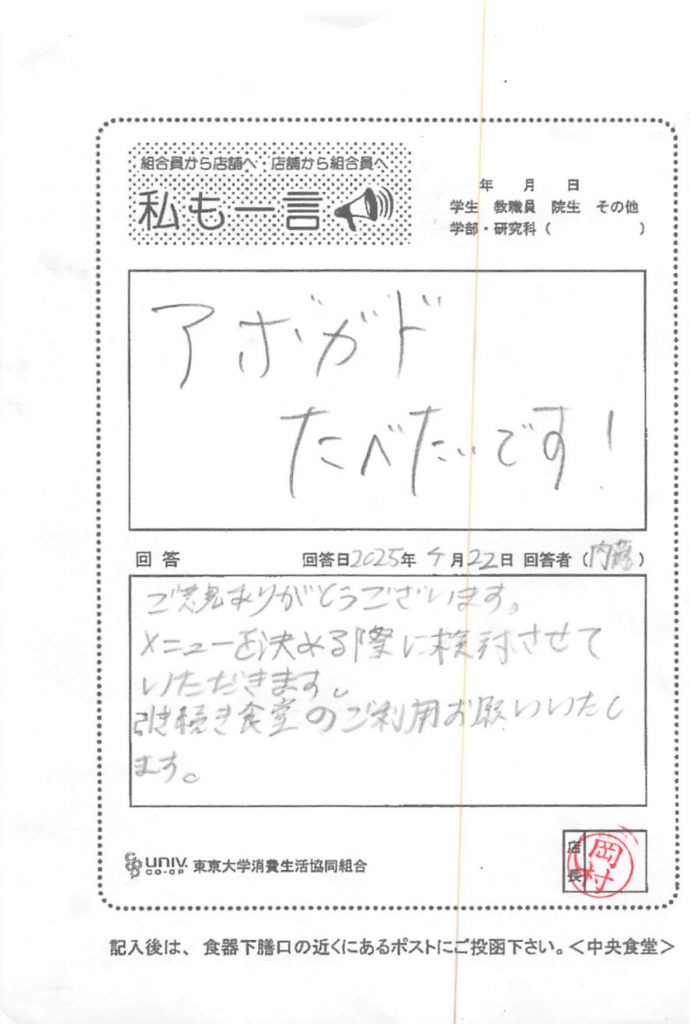 組合員から店舗へ 店舗から組合員へ
私も一言
年 月 日
学生 教職員 院生 その他
学部・研究科 ( )
アボガド
たべたいです!
回答 回答日2025年4月22日 回答者 (内藤)
ご意見ありがとうございます。
メニューを決める際に検討させて
いただきます。
引き続き食堂のご利用お願いいたし
ます。
UNIV. CO-OP 東京大学消費生活協同組合
店長
岡村
記入後は、食器下膳口の近くにあるポストにご投函下さい。<中央食堂>